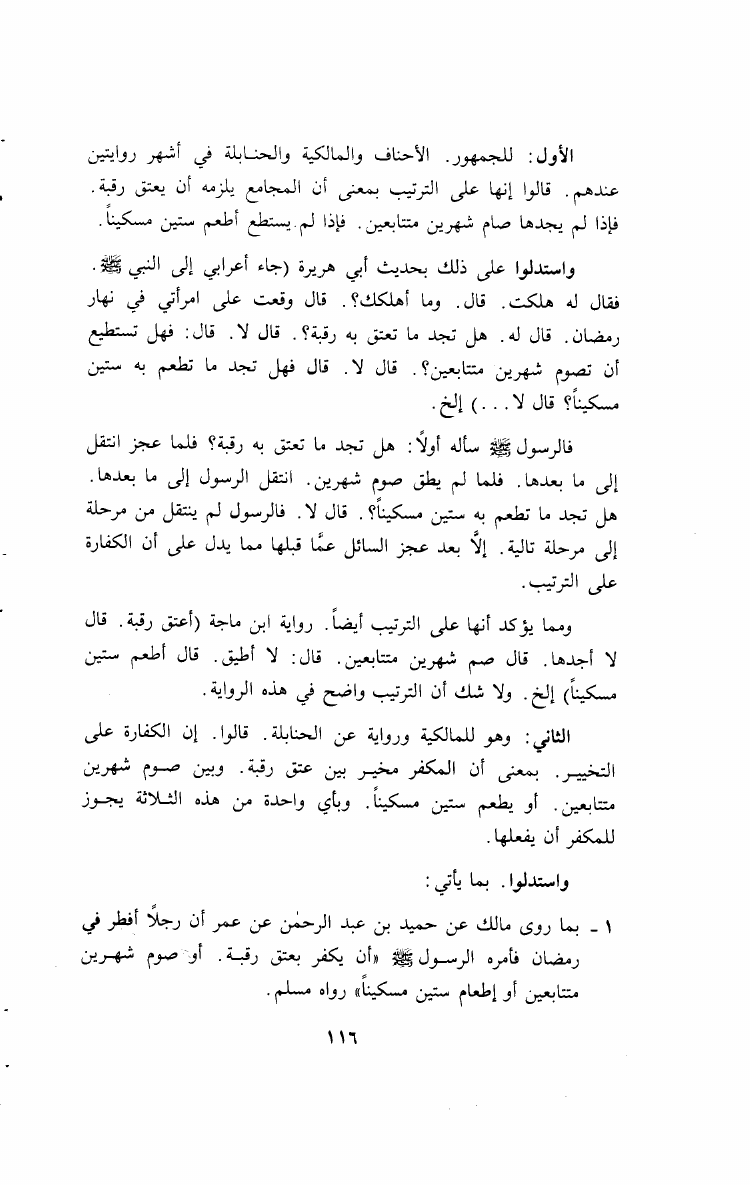 الأول: للجمهور. الأحناف والمالكية والحنابلة في أشهر روايتين
عندهم. قالوا إنها على الترتيب بمعنى أن المجامع يلزمه أن يعتق رقبة.
فإذا لم يجدها صام شهرين متتابعين. فإذا لم يستطع أطعم ستين مسكيناً.
واستدلوا على ذلك بحديث أبي هريرة (جاء أعرابي إلى النبي ﷺ.
فقال له هلكت. قال. وما أهلكك؟. قال وقعت على امرأتي في نهار
رمضان. قال له. هل تجد ما تعتق به رقبة؟. قال لا. قال: فهل تستطيع
أن تصوم شهرين متتابعين؟. قال لا. قال فهل تجد ما تطعم به ستين
مسكيناً؟ قال لا...) إلخ.
فالرسول ﷺ سأله أولاً: هل تجد ما تعتق به رقبة؟ فلما عجز انتقل
إلى ما بعدها. فلما لم يطق صوم شهرين. انتقل الرسول إلى ما بعدها.
هل تجد ما تطعم به ستين مسكيناً؟. قال لا. فالرسول لم ينتقل من مرحلة
إلى مرحلة تالية. إلَّا بعد عجز السائل عمَّا قبلها مما يدل على أن الكفارة
على الترتيب.
ومما يؤكد أنها على الترتيب أيضاً. رواية ابن ماجة (أعتق رقبة. قال
لا أجدها. قال صم شهرين متتابعين. قال: لا أطيق. قال أطعم ستين
مسكيناً) إلخ. ولا شك أن الترتيب واضح في هذه الرواية.
الثاني: وهو للمالكية ورواية عن الحنابلة. قالوا. إن الكفارة على
التخيير. بمعنى أن المكفر مخير بين عتق رقبة. وبين صوم شهرين
متتابعين. أو يطعم ستين مسكيناً. وبأي واحدة من هذه الثلاثة يجوز
للمكفر أن يفعلها.
واستدلوا. بما يأتي:
١ - بما روى مالك عن حميد بن عبد الرحمٰن عن عمر أن رجلاً أفطر في
رمضان فأمره الرسول ﷺ «أن يكفر بعتق رقبة. أو صوم شهرين
متتابعين أو إطعام ستين مسكيناً» رواه مسلم.
١١٦